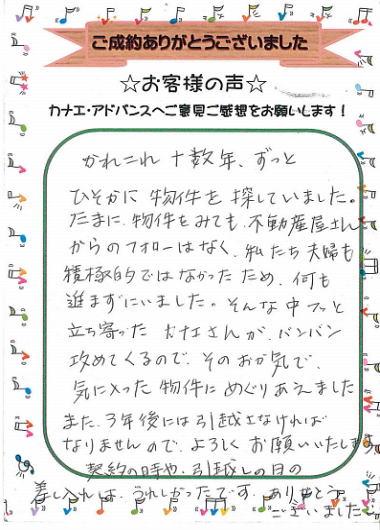 ご成約ありがとうございました
☆お客様の声☆
カナエ・アドバンスへご意見ご感想をお願いします!
かれこれ十数年、ずっと
ひそかに物件を探していました。
たまに、物件をみても、不動産屋さん
からのフォローはなく、私たち夫婦も
積極的ではなかったため、何も
進まずにいました。そんな中フッと
立ち寄ったカナエさんが、バンバン
攻めてくるので、そのおか気で、
気に入った物件にめぐりあえました
また、3年後には引越さなければ
なりませんので、よろしくお願いいたします
契約の時や、引越しの日の
差し入れは、うれしかったです。ありがとう
ございました。